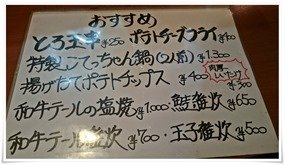 おすすめ
とろ玉子 ¥250 ポテトチーズフライ ¥400
特製こてっちゃん鍋(2人前) ¥1.300
揚げたてポテトチップス ¥400
肉厚しいたけ ¥300
和牛テールの塩焼 ¥1.000 鮭雑炊 ¥650
和牛テール雑炊 ¥700・玉子雑炊 ¥500